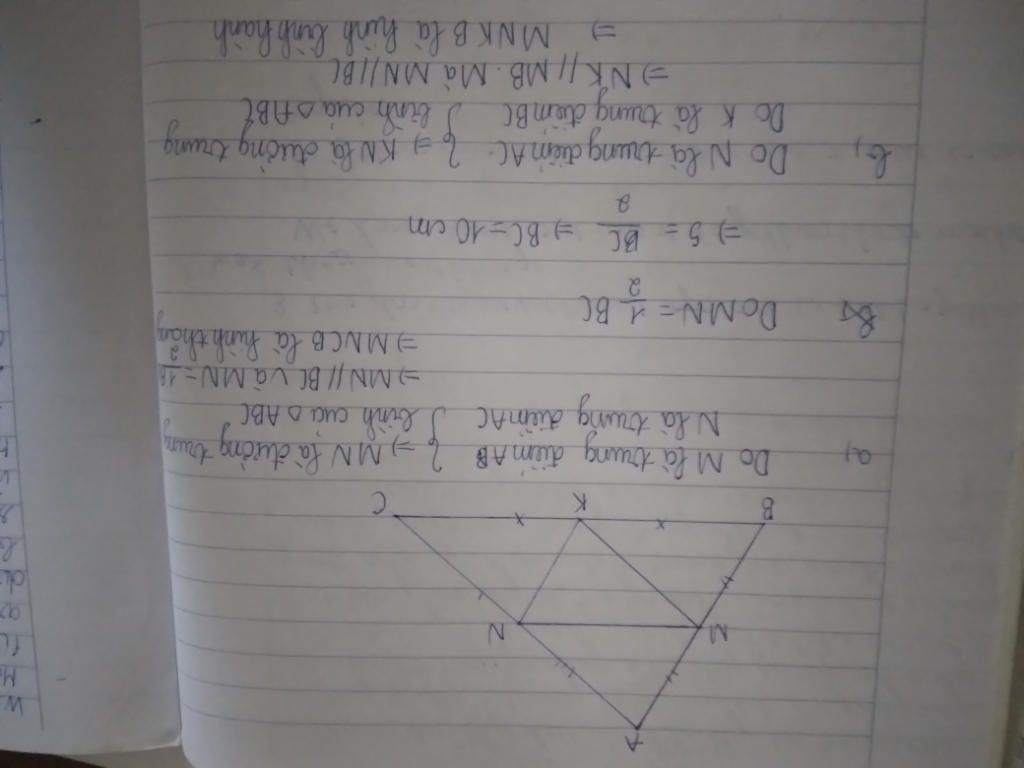 A
M
N
B
K
C
a, Do M là trung điểm AB } => MN là đường trung
N là trung điểm AC } bình của △ABC
=> MN // BC và MN = 1/2 B
=> MNCB là hình thang
Do MN = 1/2 BC
=> 5 = BC/2 => BC = 10 cm
b, Do N là trung điểm AC. } => KN là đường trung
Do K là trung điểm BC } bình của △ABC
=> NK // MB. Mà MN // BC
=> MNKB là hình bình hành